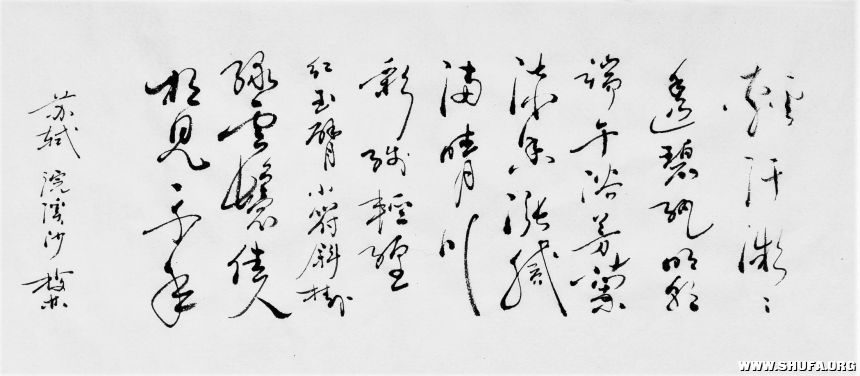 輕汗微〻
透碧纨明朝
端午浴芳蘭
流香漲膩
滿晴川
彩线輕纏
红玉臂小符斜掛
绿雲鬟佳人
相見一千年
苏轼 浣溪沙
WWW.SHUFA.ORG